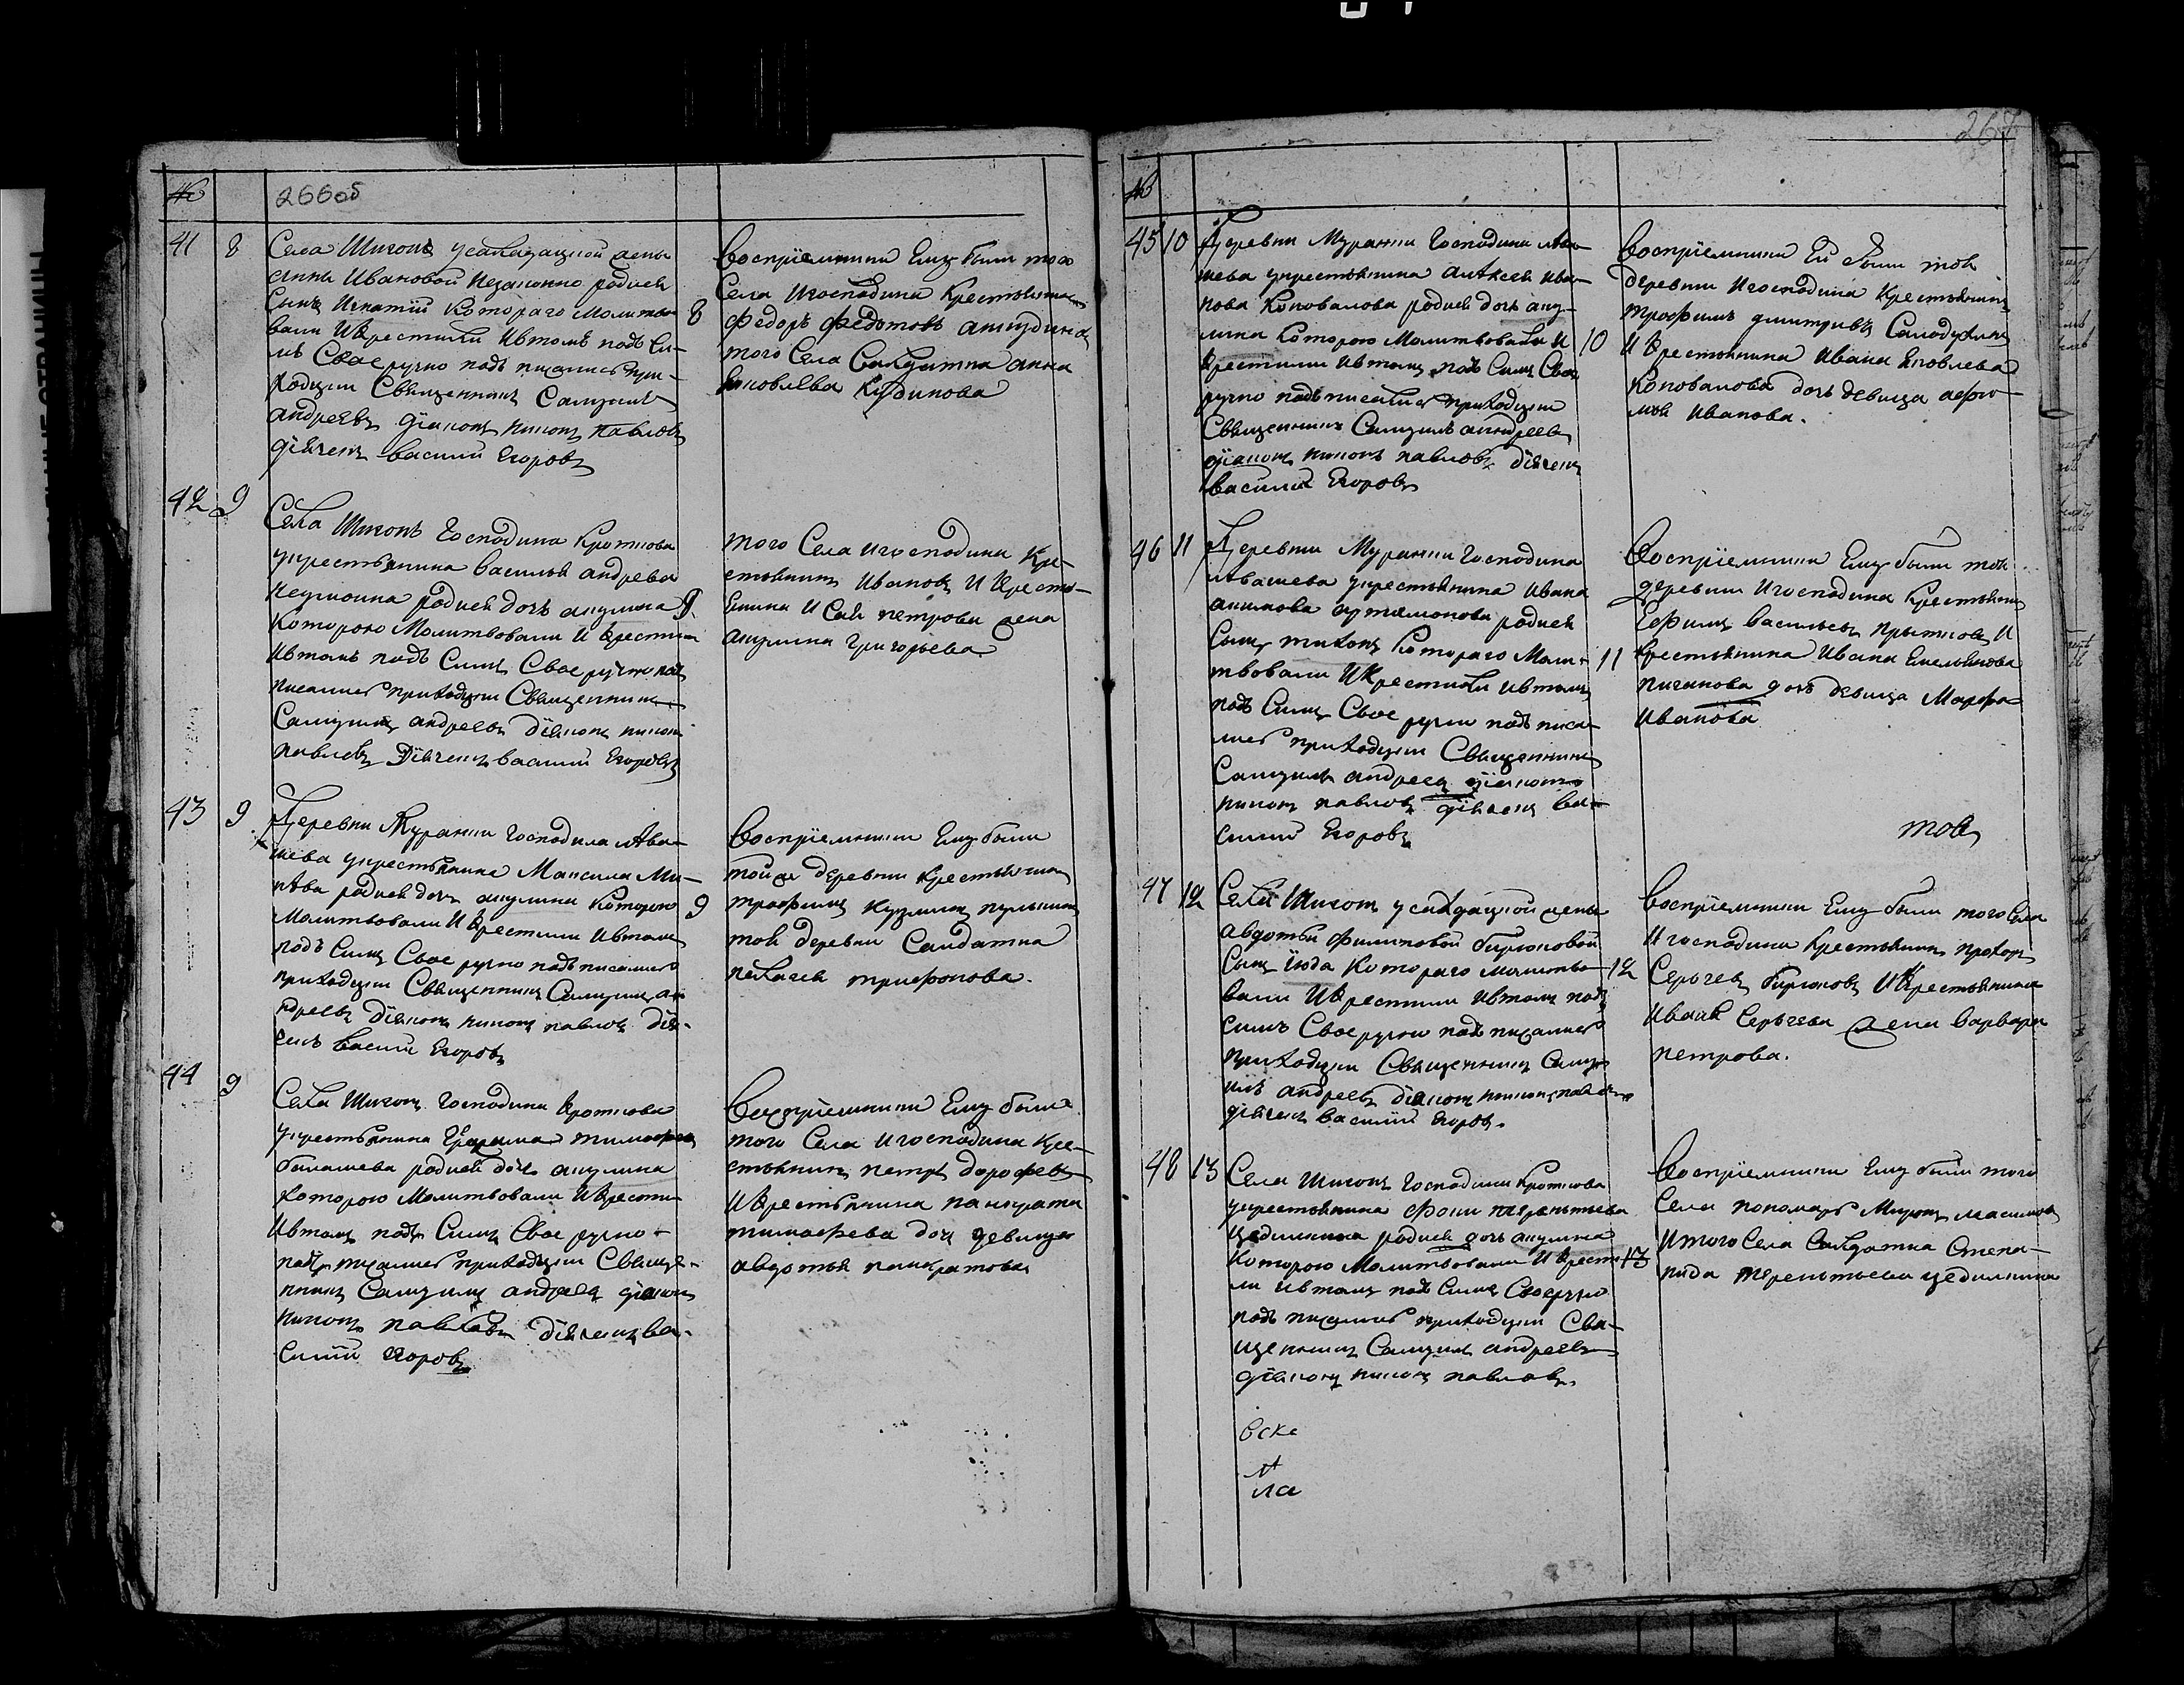 266об
№
41 8 Села Шигонъ усалдацкой жены
анны Ивановой незаконно родися
сынъ Игнатiй Котораго Молитво
вали И Крестили Ивтомъ подъ Си-
мъ Свое ручно подъ писались при-
ходцкiи Священникъ Самуилъ
андреевъ дiаконъ никонъ павловъ
дiячекъ василiй Егоровъ
8
Восприемники Ему были того
Села Игосподина Крестьянинъ
Федоръ Федотовъ
того Села Салдатка анна
Яковлева Кудинова
42 9
Села Шигонъ Господина Кроткова
укрестьянина василья андреева
родися дочь акулина
Которою Молитвовали И крестили
Ивтомъ подъ Симъ Свое ручно подъ
писались приходцкiи Священникъ
Самуилъ андреевъ дiяконъ никонъ
павловъ Дiячекъ василiй Егоровъ
9
того Села игосподина Кре-
стьянинъ Ивановъ И Кресть-
янина Исая петрова жена
акулина григорьева
43 9
Деревни Муранки Господина Ива-
шева укрестьянина Максима Ми-
родися дочь акулина Которою
Молитвовали И Крестили Ивтомъ
подъ Симъ Свое ручно подъписались
приходцкiи Священникъ Самуилъ ан
дреевъ Дiяконъ никонъ павловъ дiя-
чекъ василiй Егоровъ
9
Восприемники Ему были
тойже деревни крестьянинъ
трофимъ Кузминъ
той деревни Салдатка
пелагея трифонова.
44 9
Села Шигонъ Господина Кроткова
укрестьянина тимофеева
балашева родися дочь акулина
Которою Молитвовали И Крести
Ивтомъ подъ Симъ Свое ручно
подъ писались приходцкiи Священ-
никъ Самуилъ андреевъ дiаконъ
никонъ павловъ дiячекъ ва-
силiй Егоровъ
Восприемники Ему были
того Села игосподина Кре-
стьянинъ петръ дорофеевъ
И Крестьянина панкрата
тимофеева дочь девица
авдотья панкратова
267
№
45 10 Деревни Муранки Господина Ива-
шева укрестьянина алексея ива-
нова Коновалова родися дочь аку-
лина Которою Молитвовали И
Крестили Ивтомъ подъ Симъ Свое
ручно подъписались приходцкiи
Священникъ Самуилъ андреевъ
дiаконъ никонъ павловъ дiячекъ
василiй Егоровъ
10
Восприемники Ей были той
деревни Игосподина Крестьянинъ
трофимъ дмитриевъ
И Крестьянина Ивана Яковлева
Коновалова дочь девица
Иванова.
46 11 Деревни Муранки Господина
Ивашева укрестьянина Ивана
акимова артамонова родися
Сынъ тихонъ Котораго Моли-
твовали И Крестили Ивтомъ
подъ Симъ Свое ручно подъ писа-
лись приходцкiи Священникъ
Самуилъ андреевъ дiаконъ
никонъ павловъ дiячекъ Ва-
силiй Егоровъ
11
Восприемники Ему были той
деревни Игосподина Крестьянинъ
Ефимъ васильевъ И
Крестьянина Ивана Емельянова
пиганова дочь девица Марфа
Иванова
той
47 12 Села Шигонъ усалдацкой жены
авдотьи филиповой бирюковой
Сынъ iюда Котораго молитво-
вали И Крестили Ивтомъ подъ
симъ Своеручно подъ писались
приходцкiи Священникъ Саму-
илъ андреевъ дiяконъ никонъ павловъ
дiячекъ василiй Егоровъ.
12
Восприемники Ему были того Села
Игосподина Крестьянинъ прохоръ
Сергеевъ бирюковъ И Крестьянина
Ивана Сергеева жена варвара
петрова.
48 13 Села Шигонъ Господина Кроткова
укрестьянина Фомы терентьева
цедилкина родися дочь акулина
Которою Молитвовали И Крести
ли ивтомъ подъ Симъ Своеручно
подъ писались приходцкiи Свя-
щенникъ Самуилъ андреевъ
дiяконъ никонъ павловъ.
13
Восприемники Ему были того
Села пономарь Миронъ максимовъ
Итого Села Салдатка Степа-
нида терентьева цедилкина